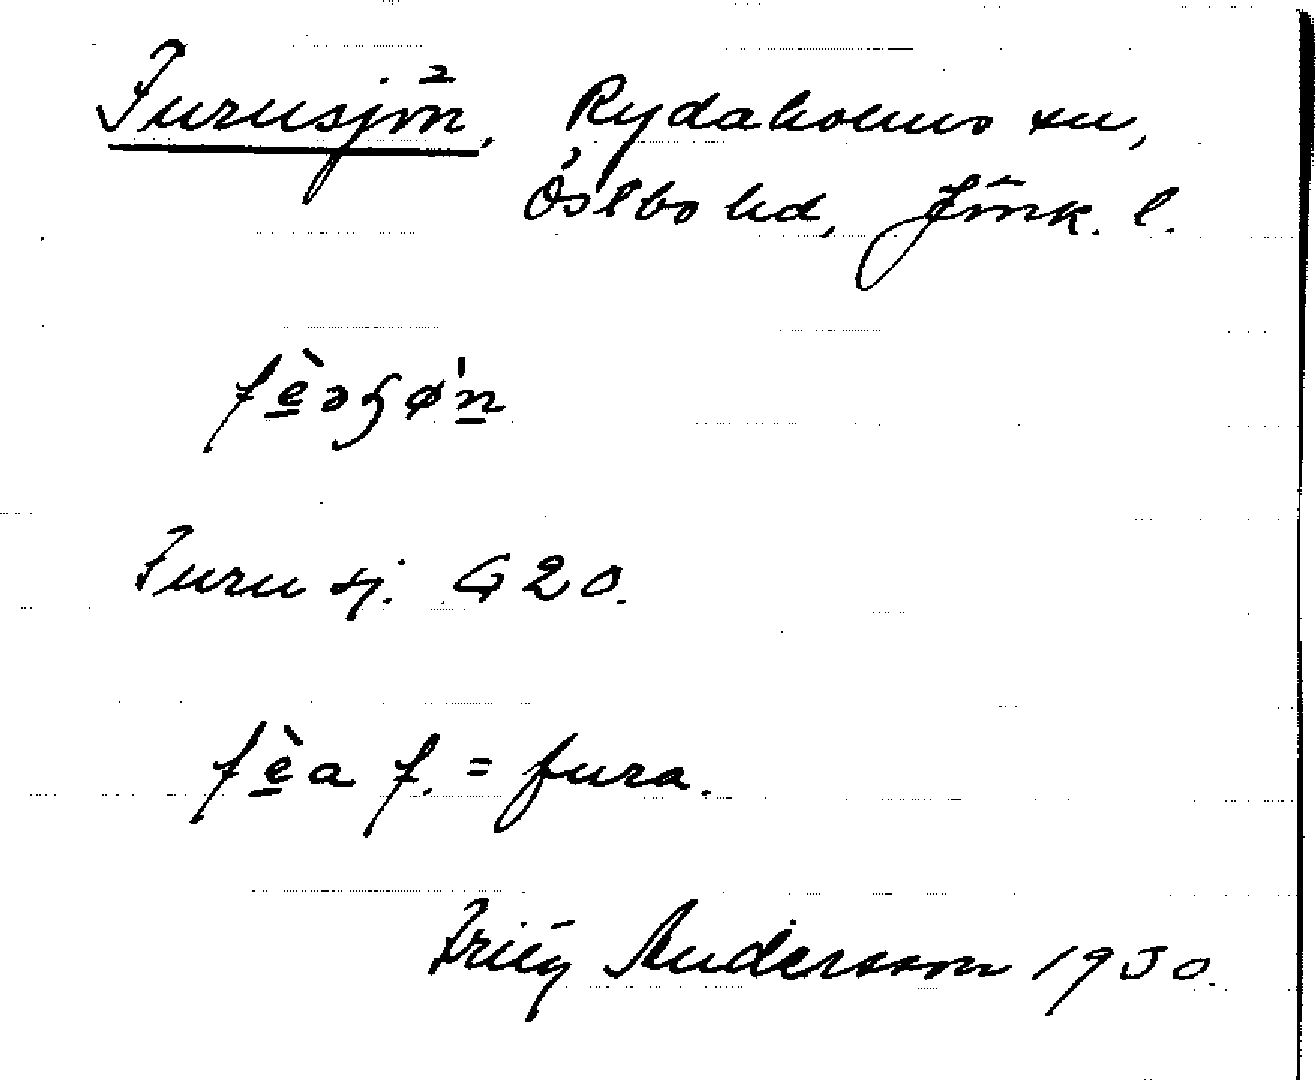 Furusjön, Rydaholms sn,
Östbo hd, Jönk. l.
fèəɧø'n
Furusj. G20.
fèa f. = fura.
Fritz Andersson 1930.